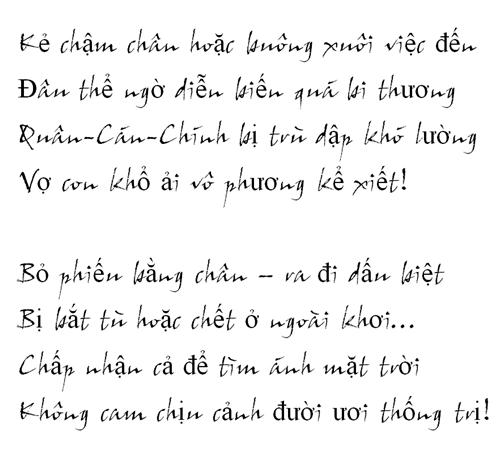 Kẻ chậm chân hoặc buông xuôi việc đến
Đâu thể ngờ diễn biến quá bi thương
Quân-Cán-Chính bị trù dập khó lường
Vợ con khổ ải vô phương kể xiết!

Bỏ phiếu bằng chân – ra đi dấu biệt
Bị bắt tù hoặc chết ở ngoài khơi...
Chấp nhận cả để tìm ánh mặt trời
Không cam chịu cảnh đười ươi thống trị!